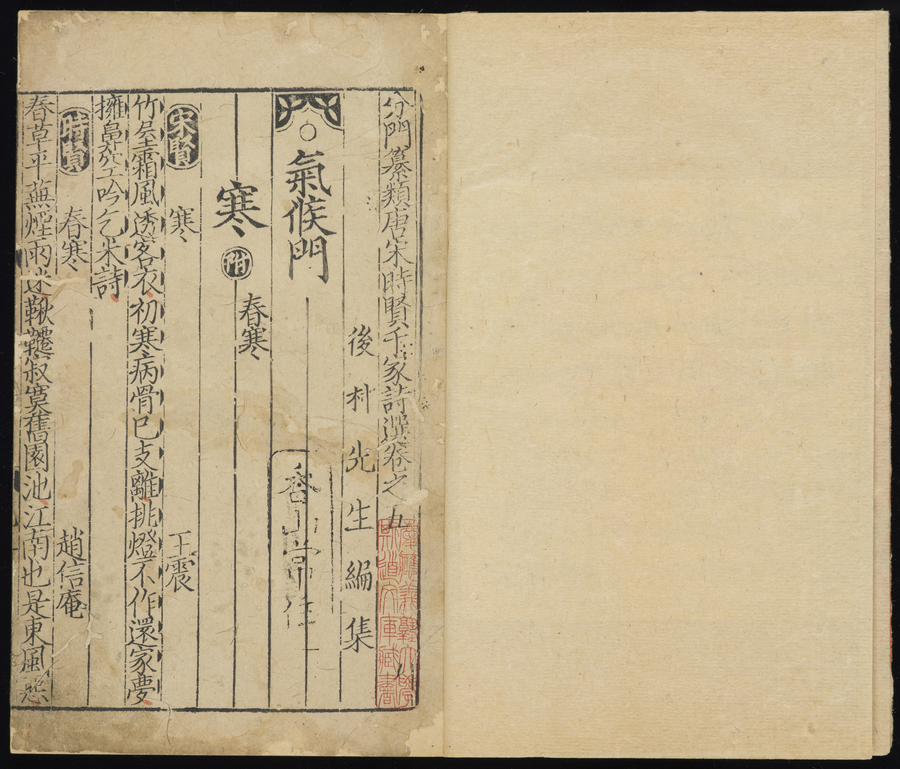 分門纂類唐宋時賢千家詩選卷之五
慶應義塾大學
斯道文庫藏書
後村先生編集
氣候門
香山常住
寒 附 春寒
宋賢 寒 王震
竹屋霜風透客衣初寒病骨已支離挑燈不作還家夢
擁鼻空吟乞米詩
時賢 春寒 趙信庵
春草平蕪煙雨迷鞦韆寂寞舊園池江南也是東風惡